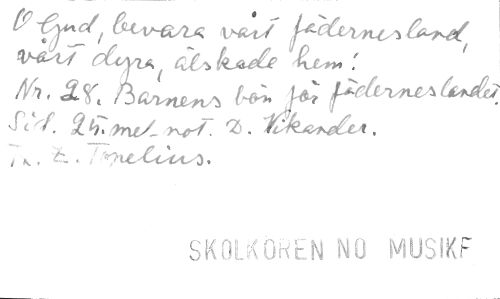 O Gud, bevara vårt fädernesland,
vårt dyra, älskade hem!
Nr. 28. Barnens bön för fäderneslandet.
Sid. 25. mel-not. D. Vikander.
Z. Topelius.
SKOLKÖREN NO MUSIKF